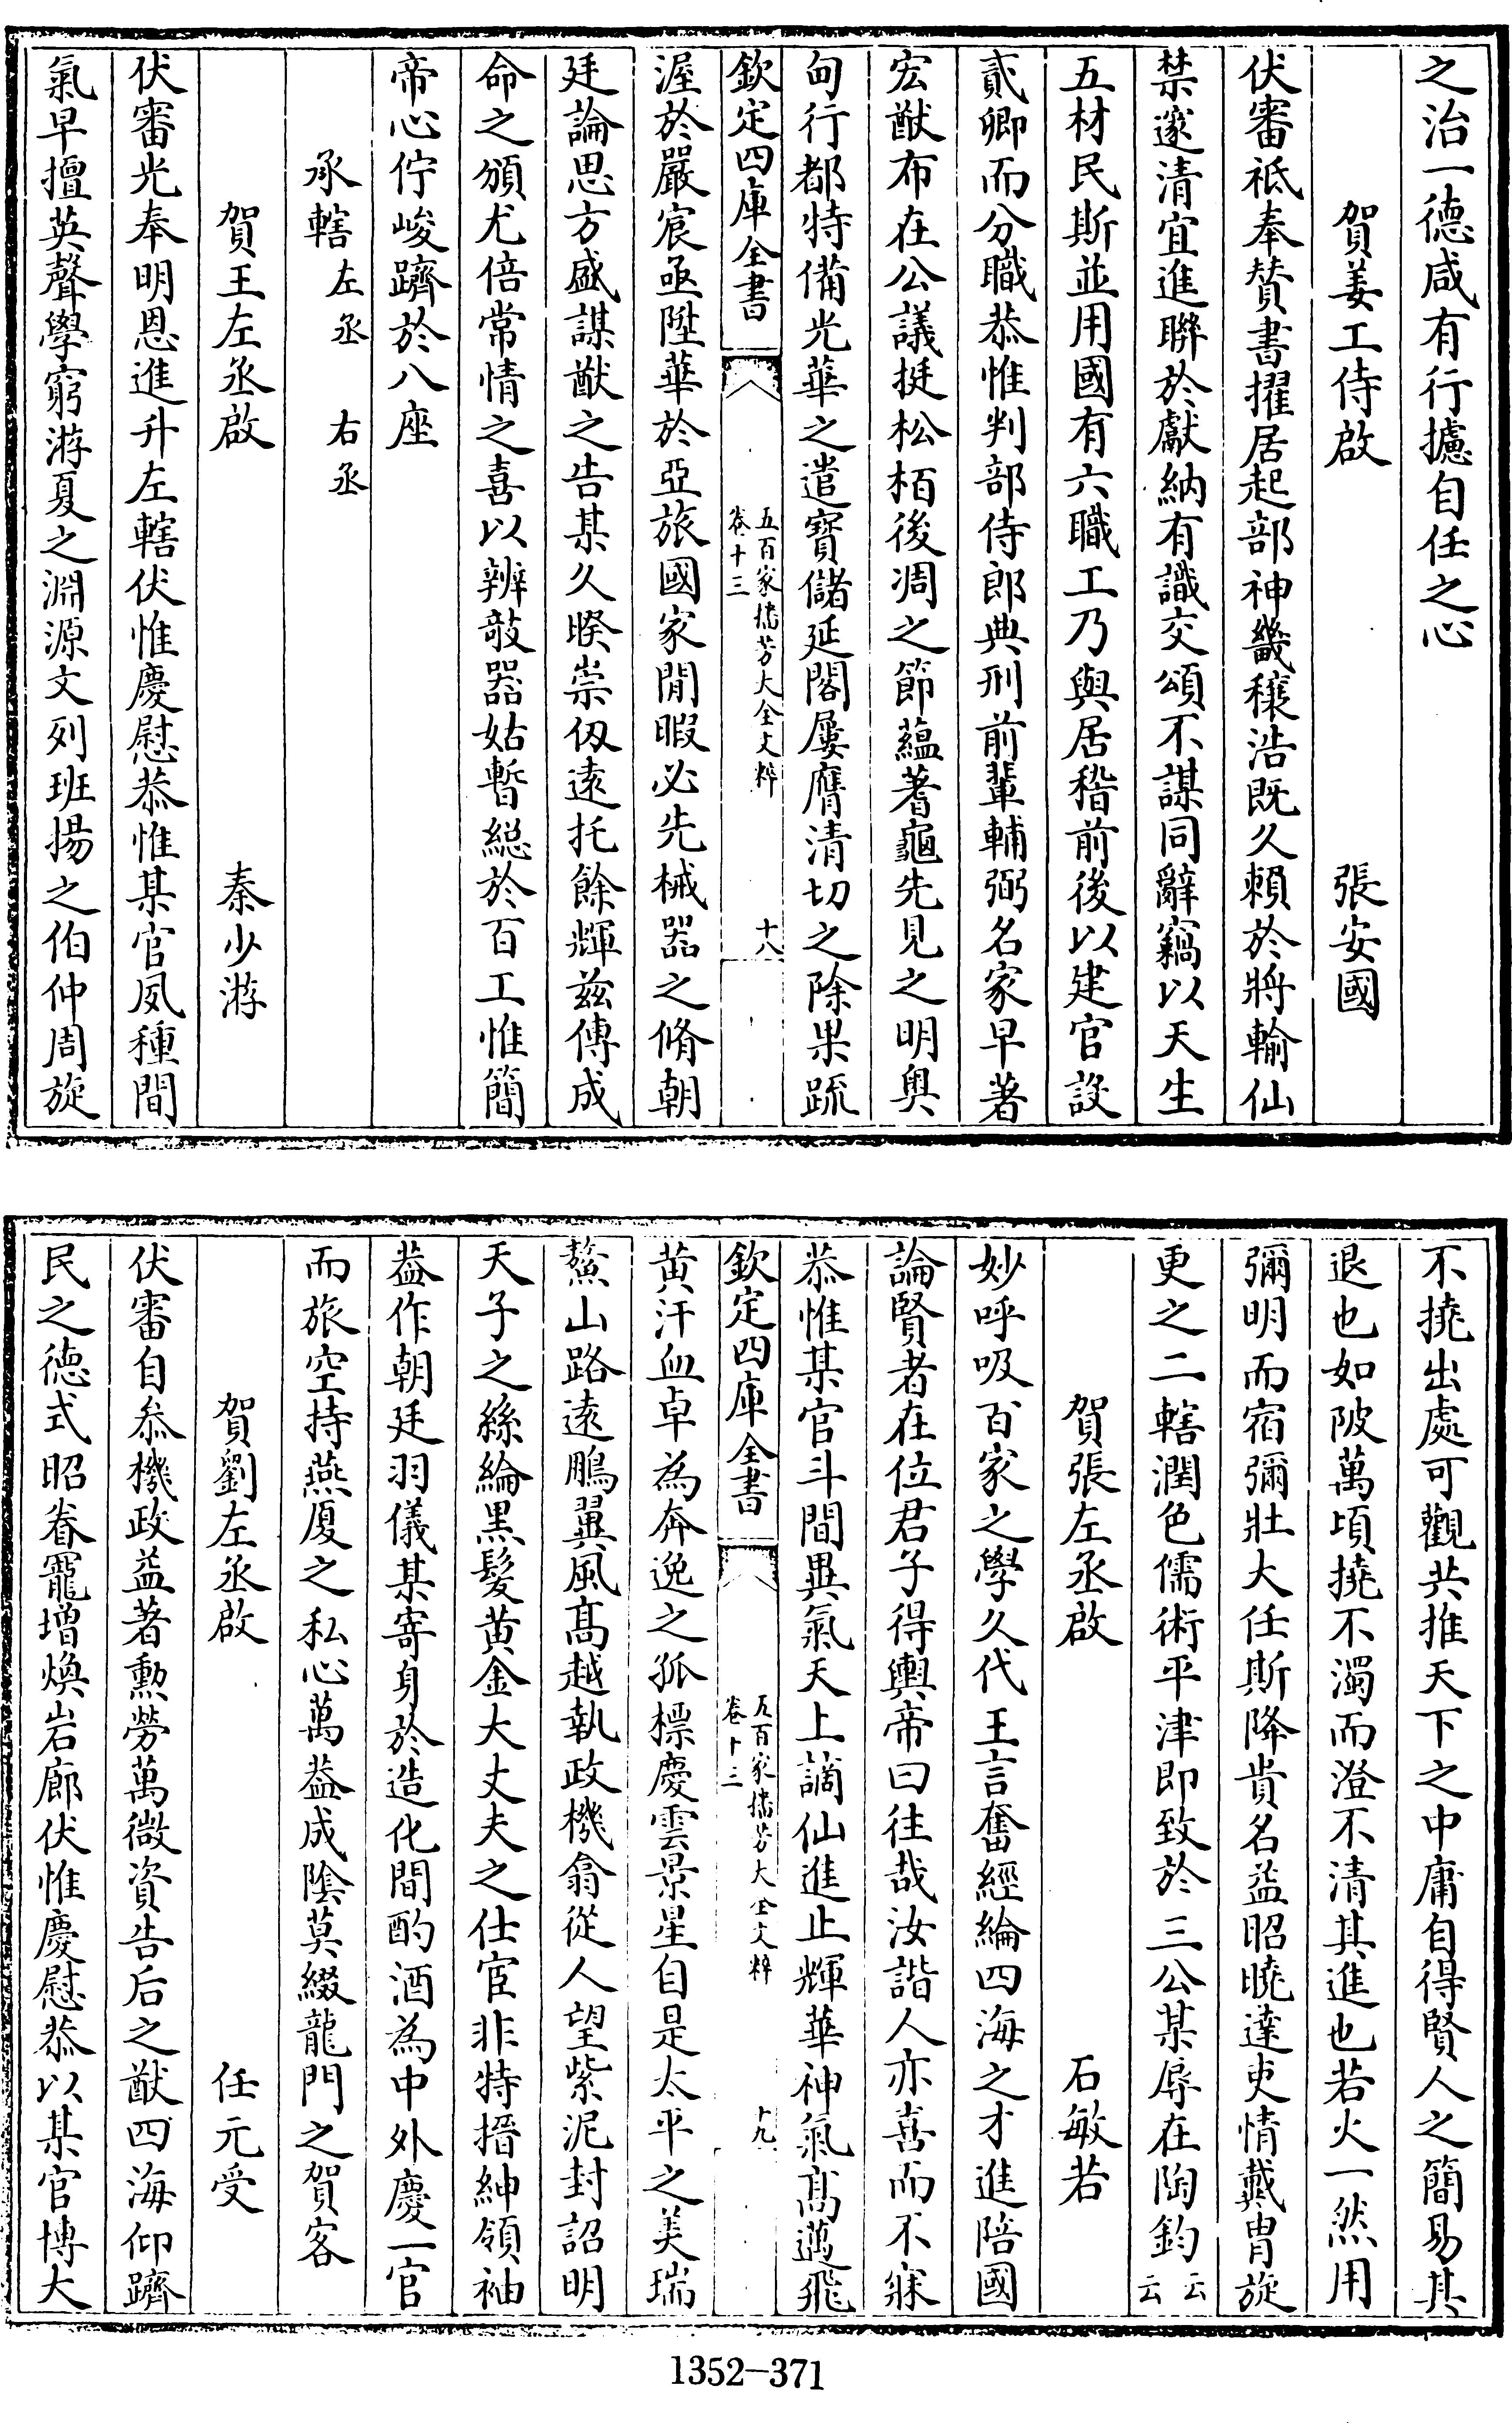 之治一德咸有行攄自任之心
賀姜工侍啟　張安國
伏審祗奉贊書擢居起部神畿穰浩既久頼於將輸仙
禁邃清宜進聯於獻納有識交頌不謀同辭竊以天生
五材民斯並用國有六職工乃與居稽前後以建官設
貳卿而分職恭惟判部侍郎典刑前輩輔弼名家早著
宏猷布在公議挺松栢後凋之節蘊蓍龜先見之明輿
甸行都特備光華之遣寳儲延閣屢膺清切之除果䟽
欽定四庫全書　五百家播芳大全文粹 卷十三　十八
渥於嚴宸亟陞華於亞旅國家閒暇必先械器之脩朝
廷論思方盛謀猷之告某久睽崇仭逺托餘輝兹傳成
命之頒尤倍常情之喜以辨敧器姑暫総於百工惟簡
帝心佇峻躋於八座
承轄左丞　右丞
賀王左丞啟　秦少游
伏審光奉明恩進升左轄伏惟慶慰恭惟某官夙種間
氣早擅英聲學窮游夏之淵源文列班揚之伯仲周旋
不撓出處可觀共推天下之中庸自得賢人之簡易其
退也如陂萬頃撓不濁而澄不清其進也若火一然用
彌明而宿彌壯大任斯降貴名益昭曉達吏情戴冑旋
更之二轄潤色儒術平津即致於三公某辱在陶鈞云云
賀張左丞啟　石敏若
妙呼吸百家之學久代王言奮經綸四海之才進陪國
論賢者在位君子得輿帝曰往哉汝諧人亦喜而不寐
恭惟某官斗間異氣天上謫仙進止輝華神氣髙邁飛
欽定四庫全書　五百家播芳大全文粹 卷十三　十九
黄汗血卓為奔逸之孤標慶雲景星自是太平之美瑞
鰲山路逺鵬翼風髙越執政機翕從人望紫泥封詔明
天子之絲綸黒髮黄金大丈夫之仕宦非特搢紳領袖
葢作朝廷羽儀某寄身於造化間酌酒為中外慶一官
而旅空持燕厦之私心萬葢成陰莫綴龍門之賀客
賀劉左丞啟　任元受
伏審自叅機政益著勲勞萬微資告后之猷四海仰躋
民之德式昭眷寵增煥岩廊伏惟慶慰恭以某官博大
1352—371